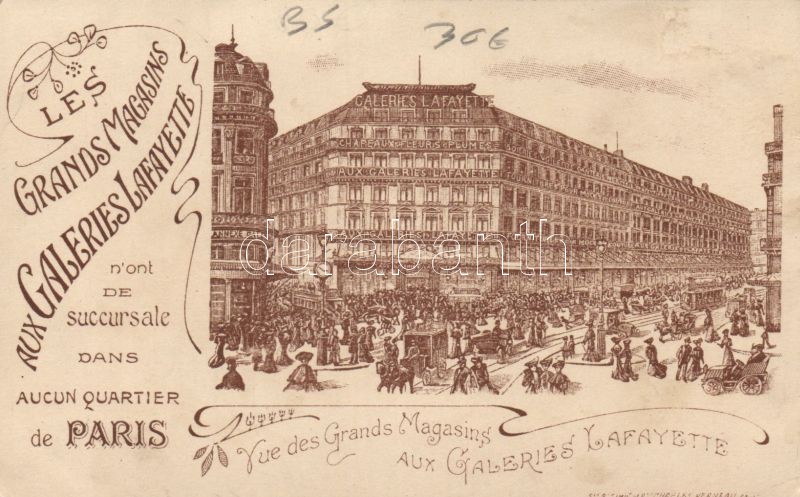 BS
30€
LES
GRANDS MAGASINS
AUX GALERIES LAFAYETTE
n'ont
DE
succursale
DANS
AUCUN QUARTIER
de PARIS
GALERIES LAFAYETTE
CHAPEAUX FLEURS PLUMES
AUX GALERIES LAFAYETTE
AUX GALERIES LAFAYETTE
ANNEXE
darabanth
Vue des Grands Magasins
AUX GALERIES LAFAYETTE